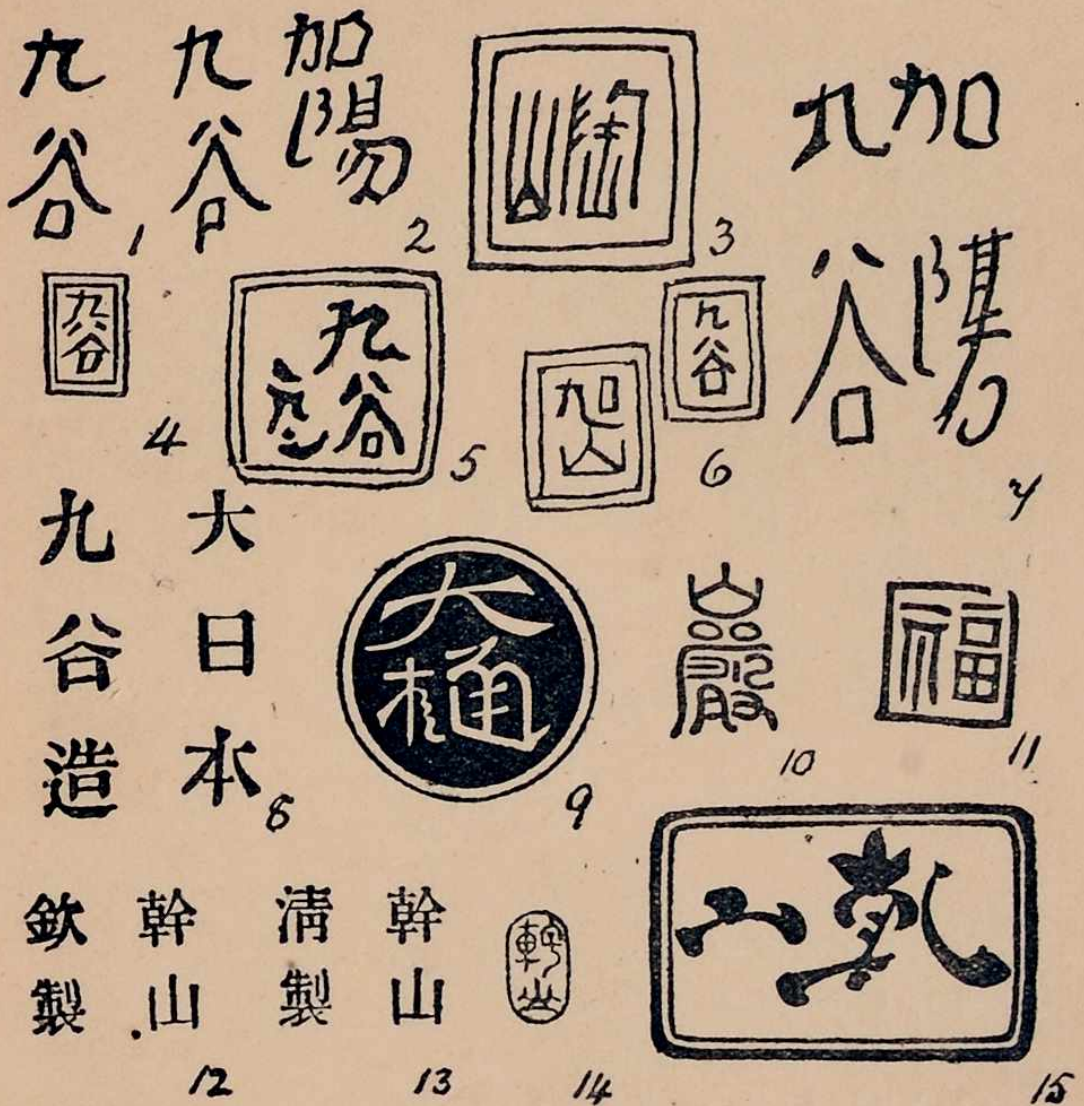 九谷
1
加陽
九谷
2
陶山
3
九谷
4
九谷
5
九谷
加山
6
加陽
九谷
7
大日本
九谷造
8
大樋
9
巖
10
福
11
幹山
欽製
12
幹山
清製
13
幹山
14
乾山
15